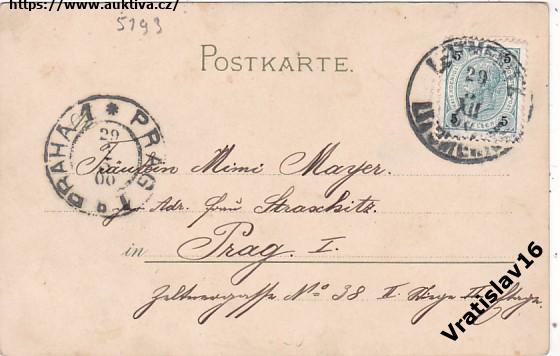 https://www.auktiva.cz/
5193
POSTKARTE.
5 5
5 5
29
XII
PRAHA 1 * PRAG 1
29
00
Fräulein Mimi Mayer.
per Adr. Frau Straschitz.
in Prag. I.
Zeltnergasse No 38 II. Stiege
Vratislav16